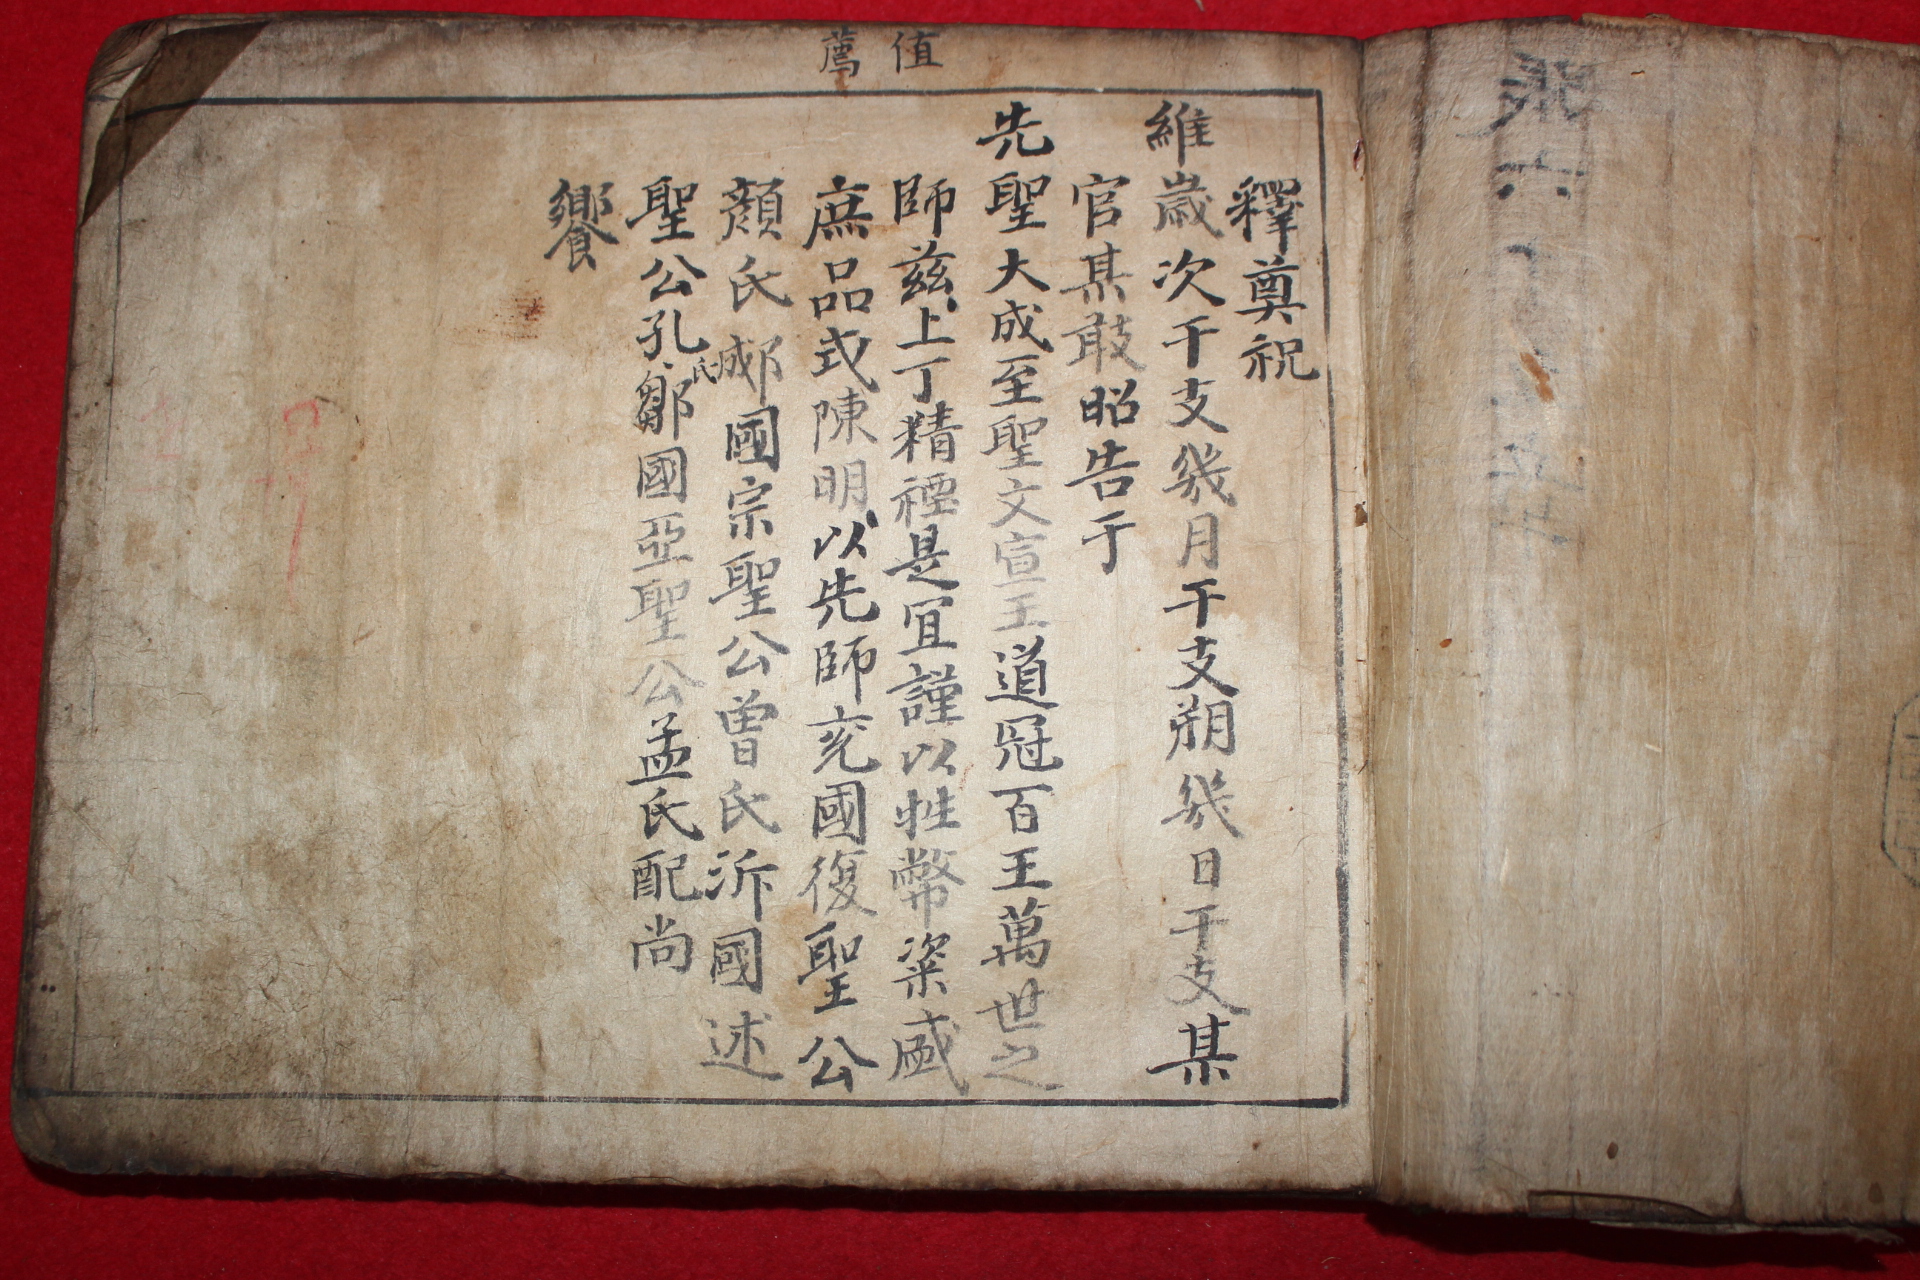 值薦
釋奠祝
維歲次干支幾月干支朔幾日干支某
官某敢昭告于
先聖大成至聖文宣王道冠百王萬世之
師茲上丁精禋是宜謹以牲幣粢盛
庶品式陳明以先師兗國復聖公
顏氏郕國宗聖公曾氏沂國述
聖公孔氏鄒國亞聖公孟氏配尚
饗